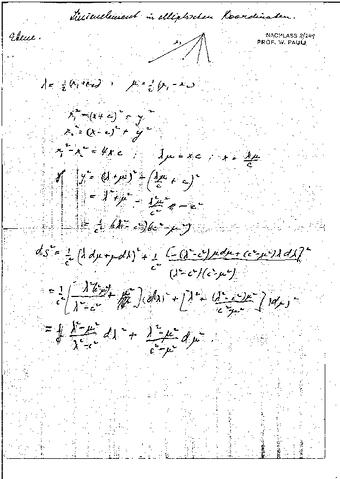 Linienelement in elliptischen Koordinaten.
Ebene.
NACHLASS
PROF. W. PAULI
r₁
λ = ½(r₁+r₂) , μ = ½(r₁−r₂)
r₁² = (x+c)² + y²
r₂² = (x−c)² + y²
r₁² − r₂² = 4xc ; λμ = xc ; x = λμ/c
y² = (λ+μ)² − (λμ/c + c)²
= λ² + μ² − λ²μ²/c² − c²
= 1/c² (λ² − c²)(c² − μ²)
ds² = 1/c² (λdμ + μdλ)² + 1/c² [−(λ²−c²)μdμ + (c²−μ²)λdλ]² / (λ²−c²)(c²−μ²)
= (λ²−μ²)/(λ²−c²) dλ² + (λ²−μ²)/(c²−μ²) dμ².